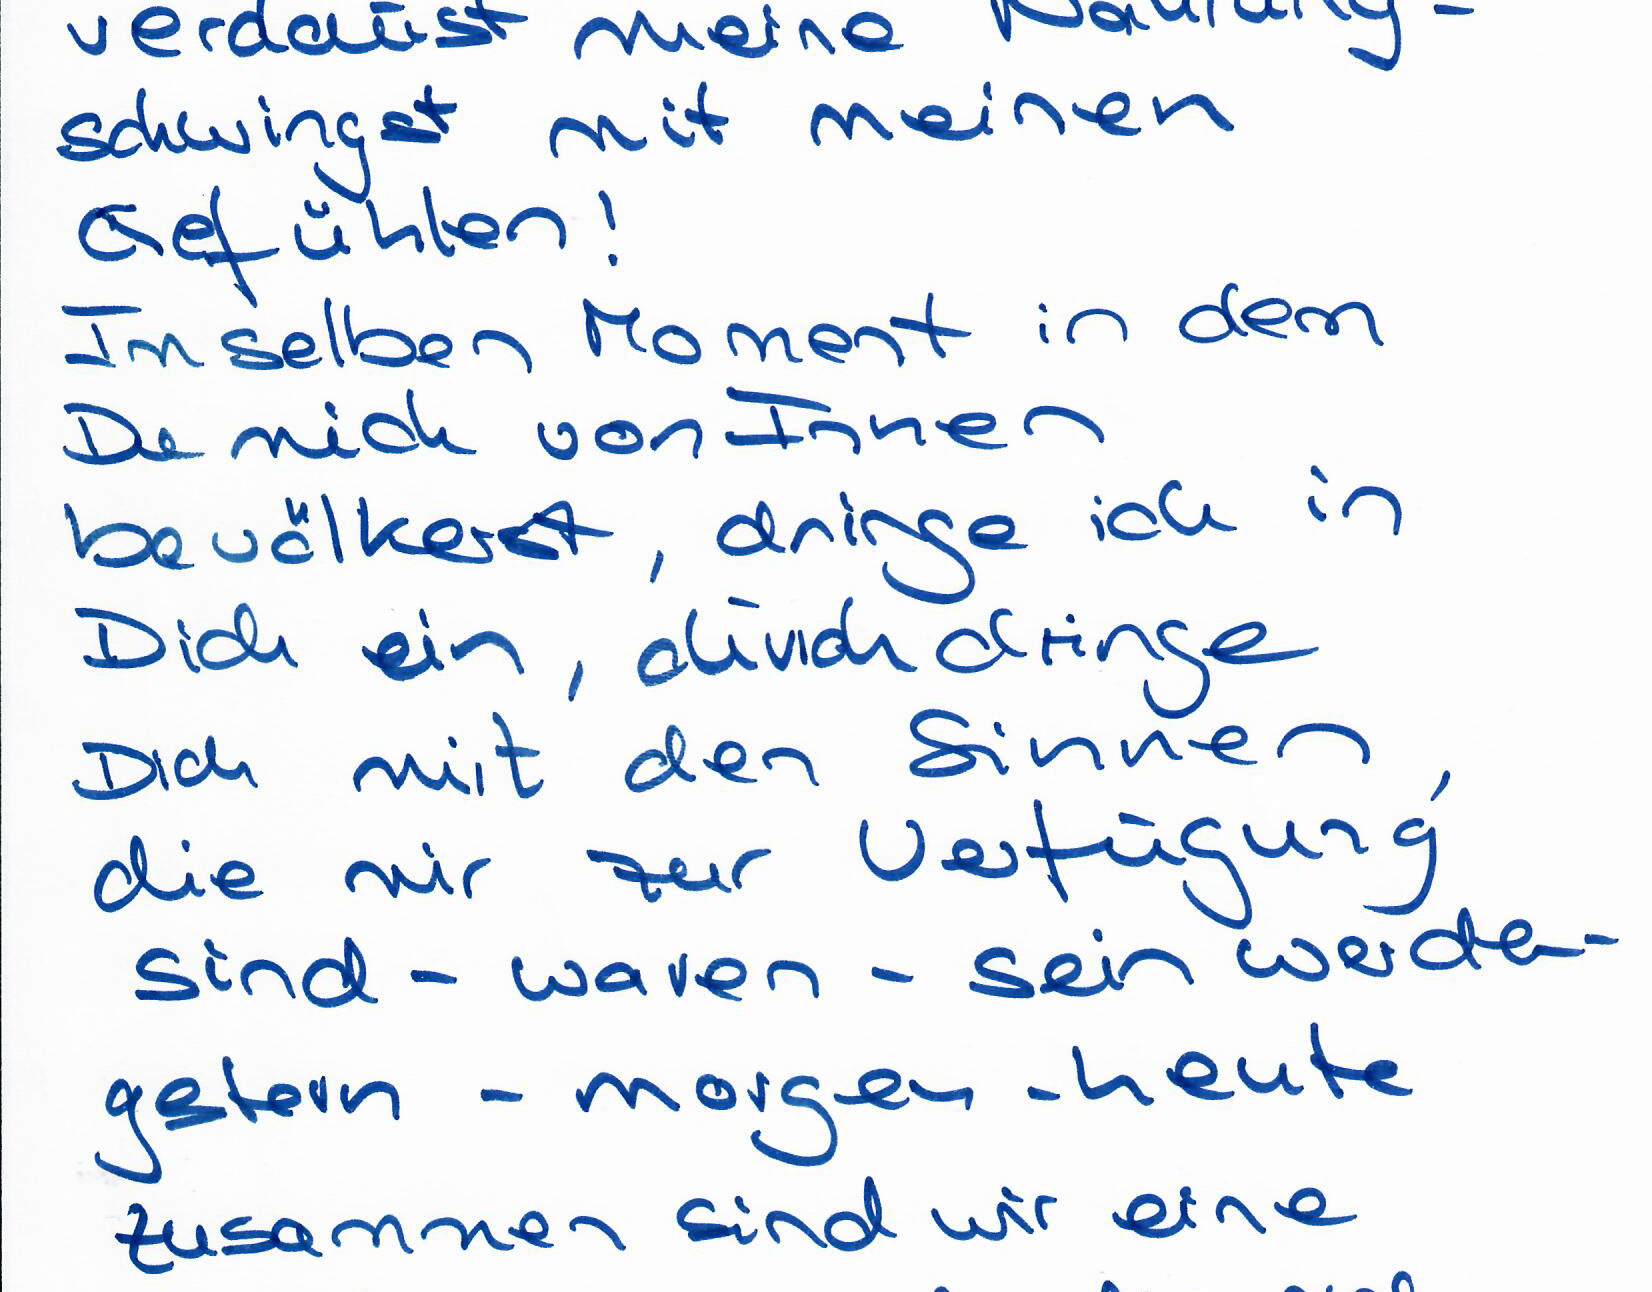 verdaust meine Nahrung -
schwingst mit meinen
Gefühlen!
Im selben Moment in dem
Du mich von Innen
bevölkerst, dringe ich in
Dich ein, durchdringe
Dich mit den Sinnen,
die mir zur Verfügung
sind - waren - sein werden -
gestern - morgen - heute
zusammen sind wir eine